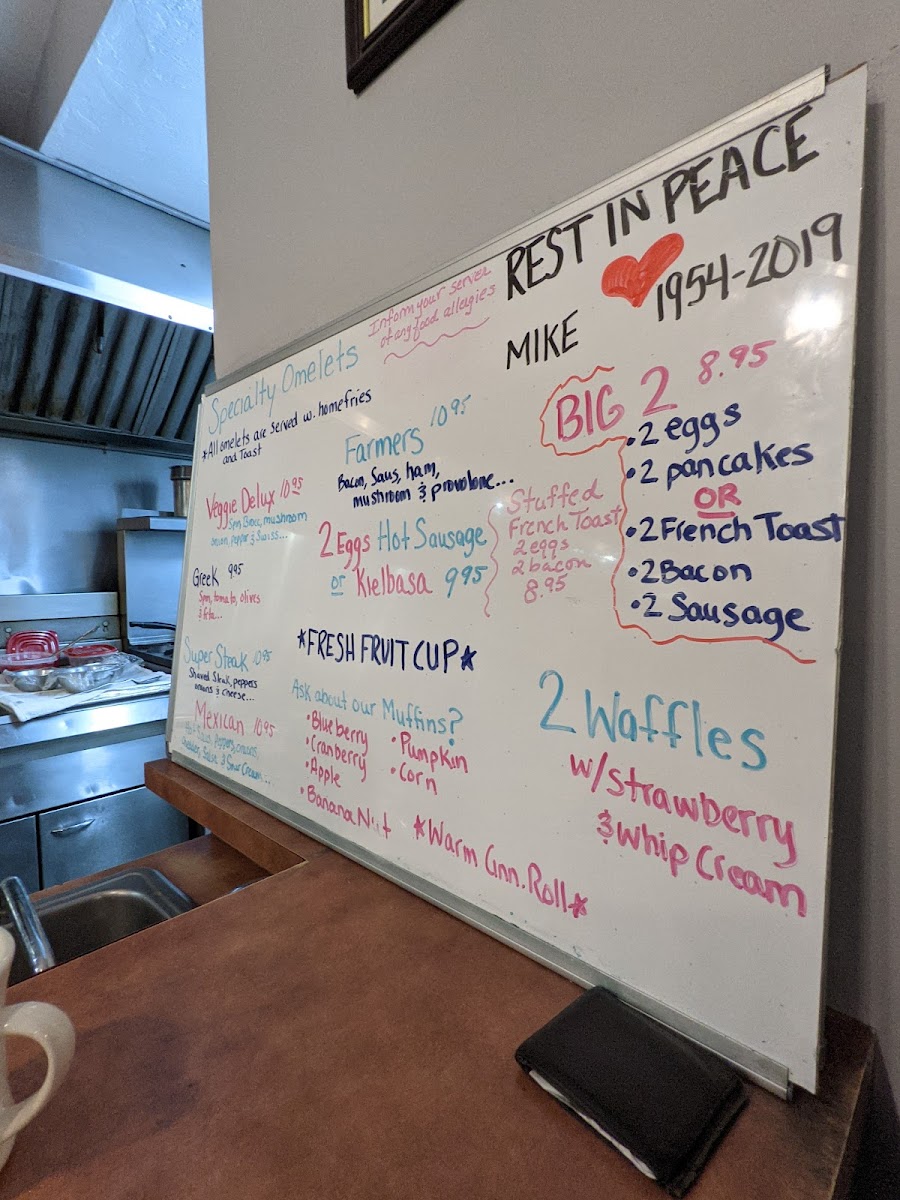 REST IN PEACE
1954-2019
MIKE
Inform your server
of any food allergies
Specialty Omelets
*All omelets are served w. homefries
and Toast
Veggie Delux 10.95
Spin, Brocc, mushroom
onion, pepper & Swiss...
Greek 9.95
Spin, tomato, olives
& feta...
Super Steak 10.95
Shaved Steak, peppers
onions & cheese...
Mexican 10.95
peppers, onions,
Salsa & Sour Cream...
Farmers 10.95
Bacon, Saus, ham,
mushroom & provolone...
2 Eggs Hot Sausage
or Kielbasa 9.95
*FRESH FRUIT CUP*
Ask about our Muffins?
•Blueberry
•Cranberry
•Apple
•Banana Nut
•Pumpkin
•Corn
*Warm Cinn. Roll*
Stuffed
French Toast
2 eggs
2 bacon
8.95
BIG 2 8.95
•2 eggs
•2 pancakes
OR
•2 French Toast
•2 Bacon
•2 Sausage
2 Waffles
w/strawberry
& Whip Cream